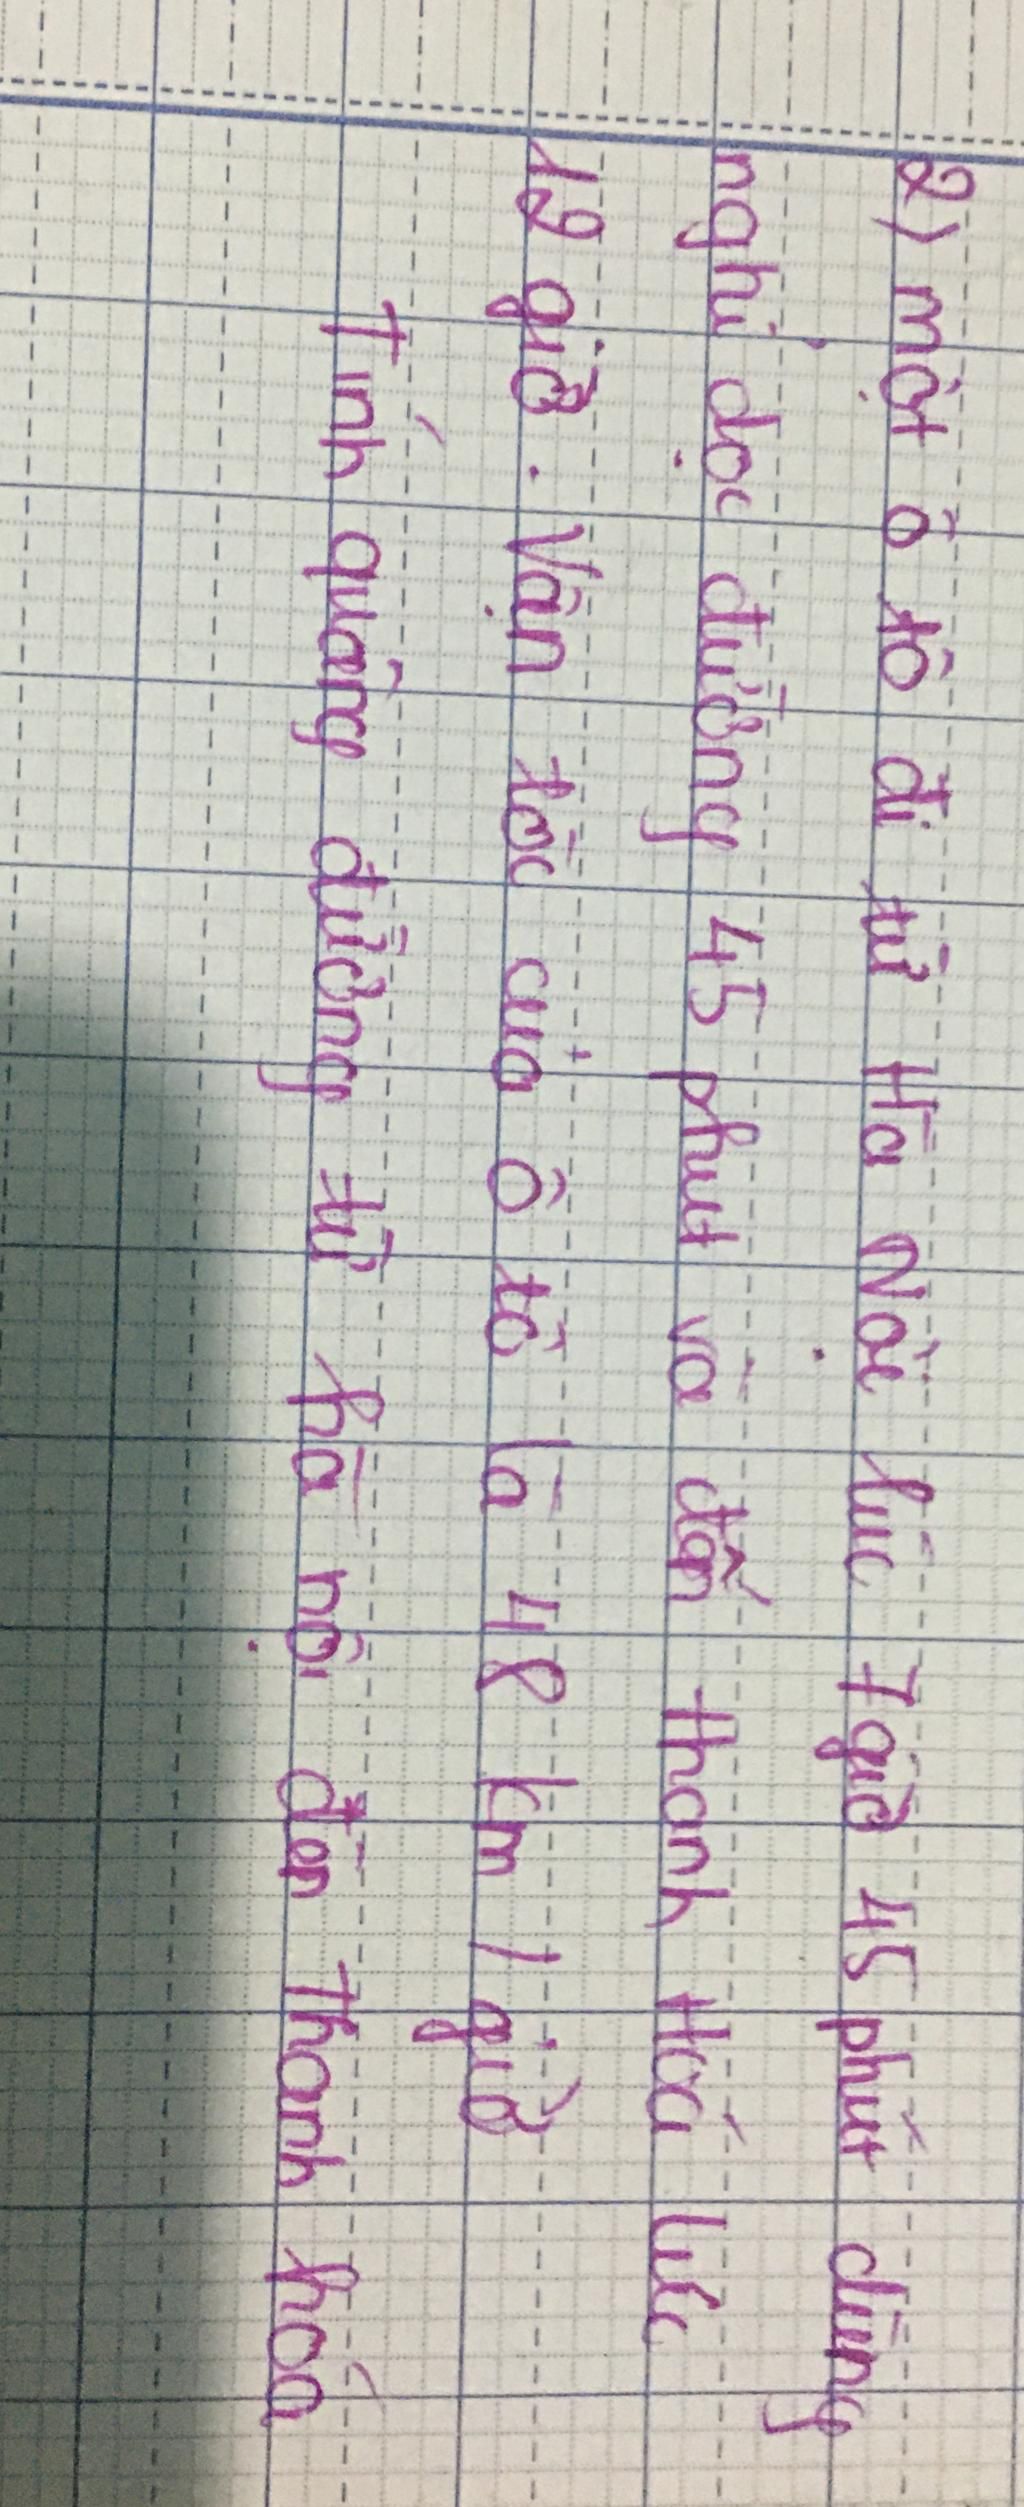 2) một ô tô đi từ Hà Nội lúc 7 giờ 45 phút dừng
nghỉ dọc đường 45 phút và đến thanh Hoá lúc
12 giờ. Vận tốc của ô tô là 48 km / giờ
Tính quãng đường từ hà nội đến Thanh hóa